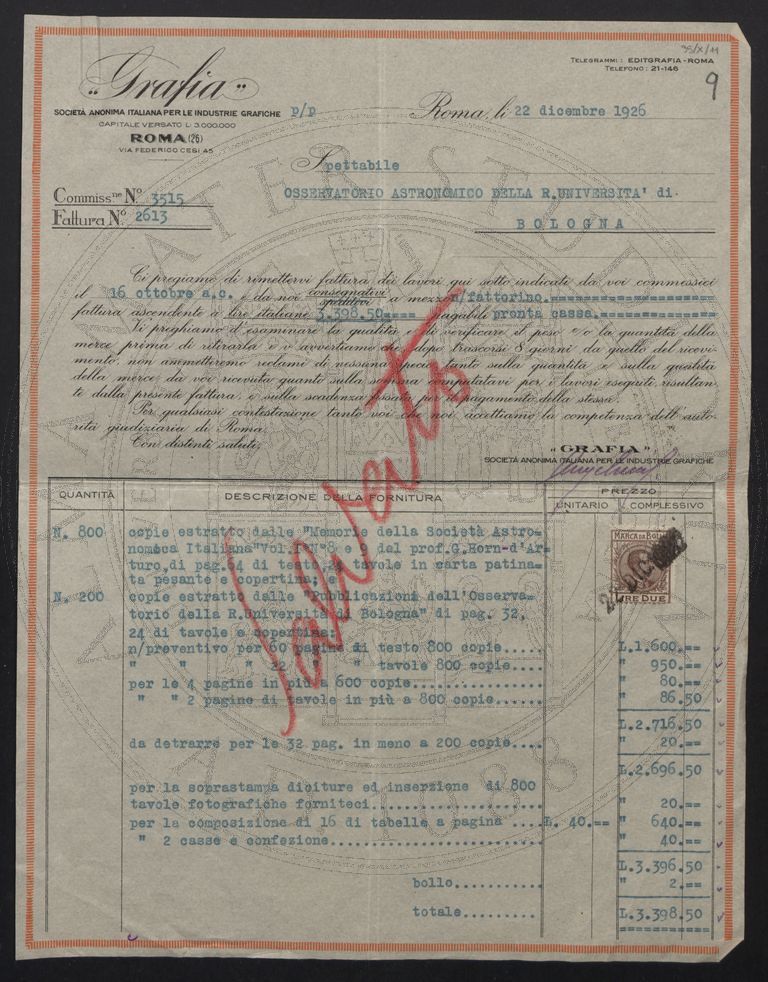 35/X/11
9
„Grafia”
SOCIETÀ ANONIMA ITALIANA PER LE INDUSTRIE GRAFICHE
CAPITALE VERSATO L. 3.000.000
ROMA (26)
VIA FEDERICO CESI 45
TELEGRAMMI: EDITGRAFIA-ROMA
TELEFONO: 21-146
p/p
Roma, li 22 dicembre 1926
Spettabile
OSSERVATORIO ASTRONOMICO DELLA R.UNIVERSITA' di
BOLOGNA
Commiss.ne N.º 3515
Fattura N.º 2613
Ci pregiamo di rimettervi fattura dei lavori qui sotto indicati da voi commessici
il 16 ottobre a.c. e da noi consegnativi spediti a mezzo n/fattorino.
fattura ascendente a lire italiane 3.398.50 pagabili pronta cassa.
Vi preghiamo d'esaminare la qualità e di verificare il peso e/o la quantità della
merce prima di ritirarla e vi avvertiamo che, dopo trascorsi 8 giorni da quello del ricevi-
mento, non ammetteremo reclami di nessuna specie, tanto sulla quantità e sulla qualità
della merce da voi ricevuta quanto sulla somma computatavi per i lavori eseguiti, risultan-
te dalla presente fattura, e sulla scadenza fissata per il pagamento della stessa.
Per qualsiasi contestazione tanto voi che noi accettiamo la competenza dell'auto-
rità giudiziaria di Roma.
Con distinti saluti,
„GRAFIA”
SOCIETÀ ANONIMA ITALIANA PER LE INDUSTRIE GRAFICHE
QUANTITÀ DESCRIZIONE DELLA FORNITURA PREZZO
UNITARIO COMPLESSIVO
MARCA DA BOLLO
LIRE DUE
N. 800 copie estratto dalle "Memorie della Società Astro=
nomica Italiana"Vol.I N°8 e 9 del prof.G.Horn-d'Ar=
turo,di pag.64 di testo,24 tavole in carta patina=
ta pesante e copertina; e
N. 200 copie estratto dalle "Pubblicazioni dell'Osserva=
torio della R.Università di Bologna" di pag. 32,
24 di tavole e copertina:
n/preventivo per 60 pagine di testo 800 copie..... L.1.600.==
" " " 22 " " tavole 800 copie.... " 950.==
per le 4 pagine in più a 600 copie............... " 80.==
" " 2 pagine di tavole in più a 800 copie....... " 86.50
L.2.716.50
da detrarre per le 32 pag. in meno a 200 copie.... " 20.==
L.2.696.50
per la soprastampa diciture ed inserzione di 800
tavole fotografiche forniteci.................... " 20.==
per la composizione di 16 di tabelle a pagina .... L. 40.== " 640.==
" 2 casse e confezione......................... " 40.==
L.3.396.50
bollo.......... " 2.==
totale......... L.3.398.50